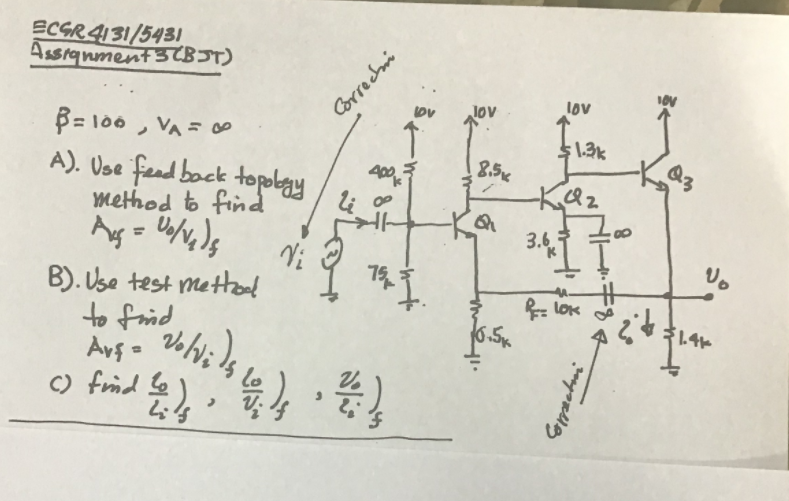 ECGR 4131/5431
Assignment 3 (BJT)
β = 100 , VA = ∞
A). Use feed back topology
method to find
Avf = vo/vi)f
B). Use test method
to find
Avf = vo/vi)f
C) find io/ii)f , io/vi)f , vo/ii)f
Correction
10V
10V
10V
10V
400k
8.5k
1.3k
Q3
ii
∞
Q1
Q2
3.6k
∞
vi
75k
vo
RF = 10k
∞
io
0.5k
1.4k
Correction